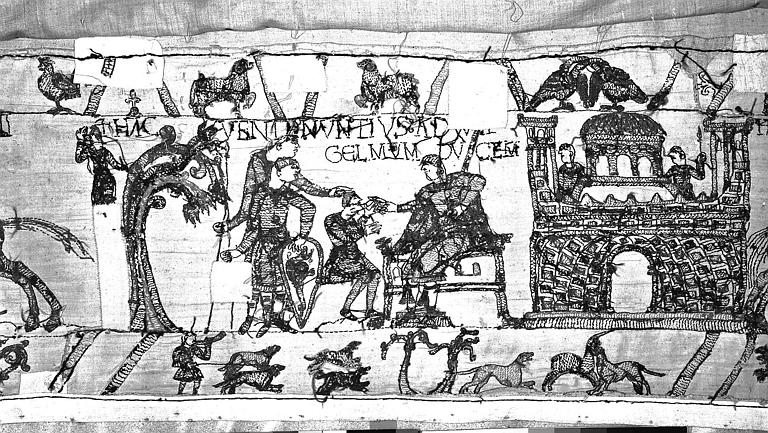 HIC VENIT NVNTIVS AD WIL
GELMVM DVCEM